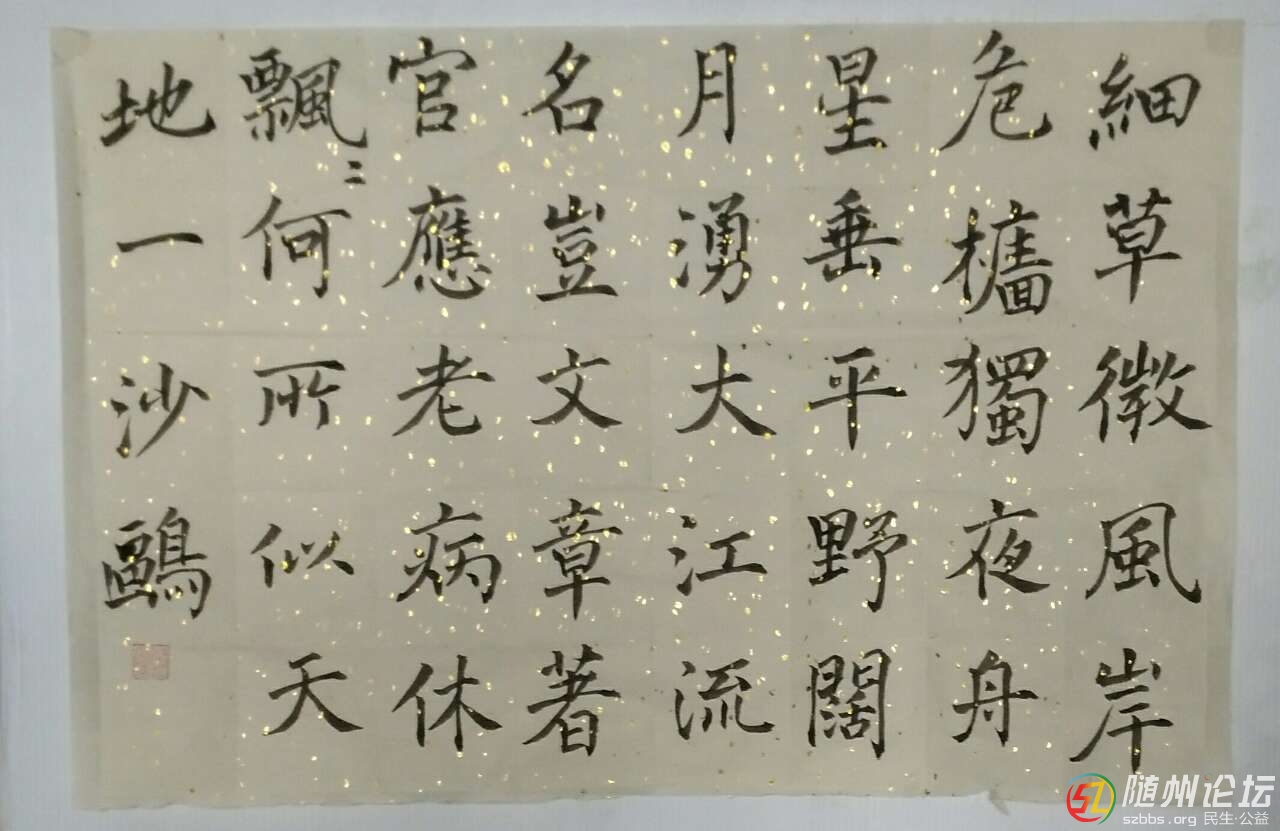 細草微風岸
危檣獨夜舟
星垂平野闊
月湧大江流
名豈文章著
官應老病休
飄〻何所似天
地一沙鷗
随州论坛
szbbs.org 民生·公益